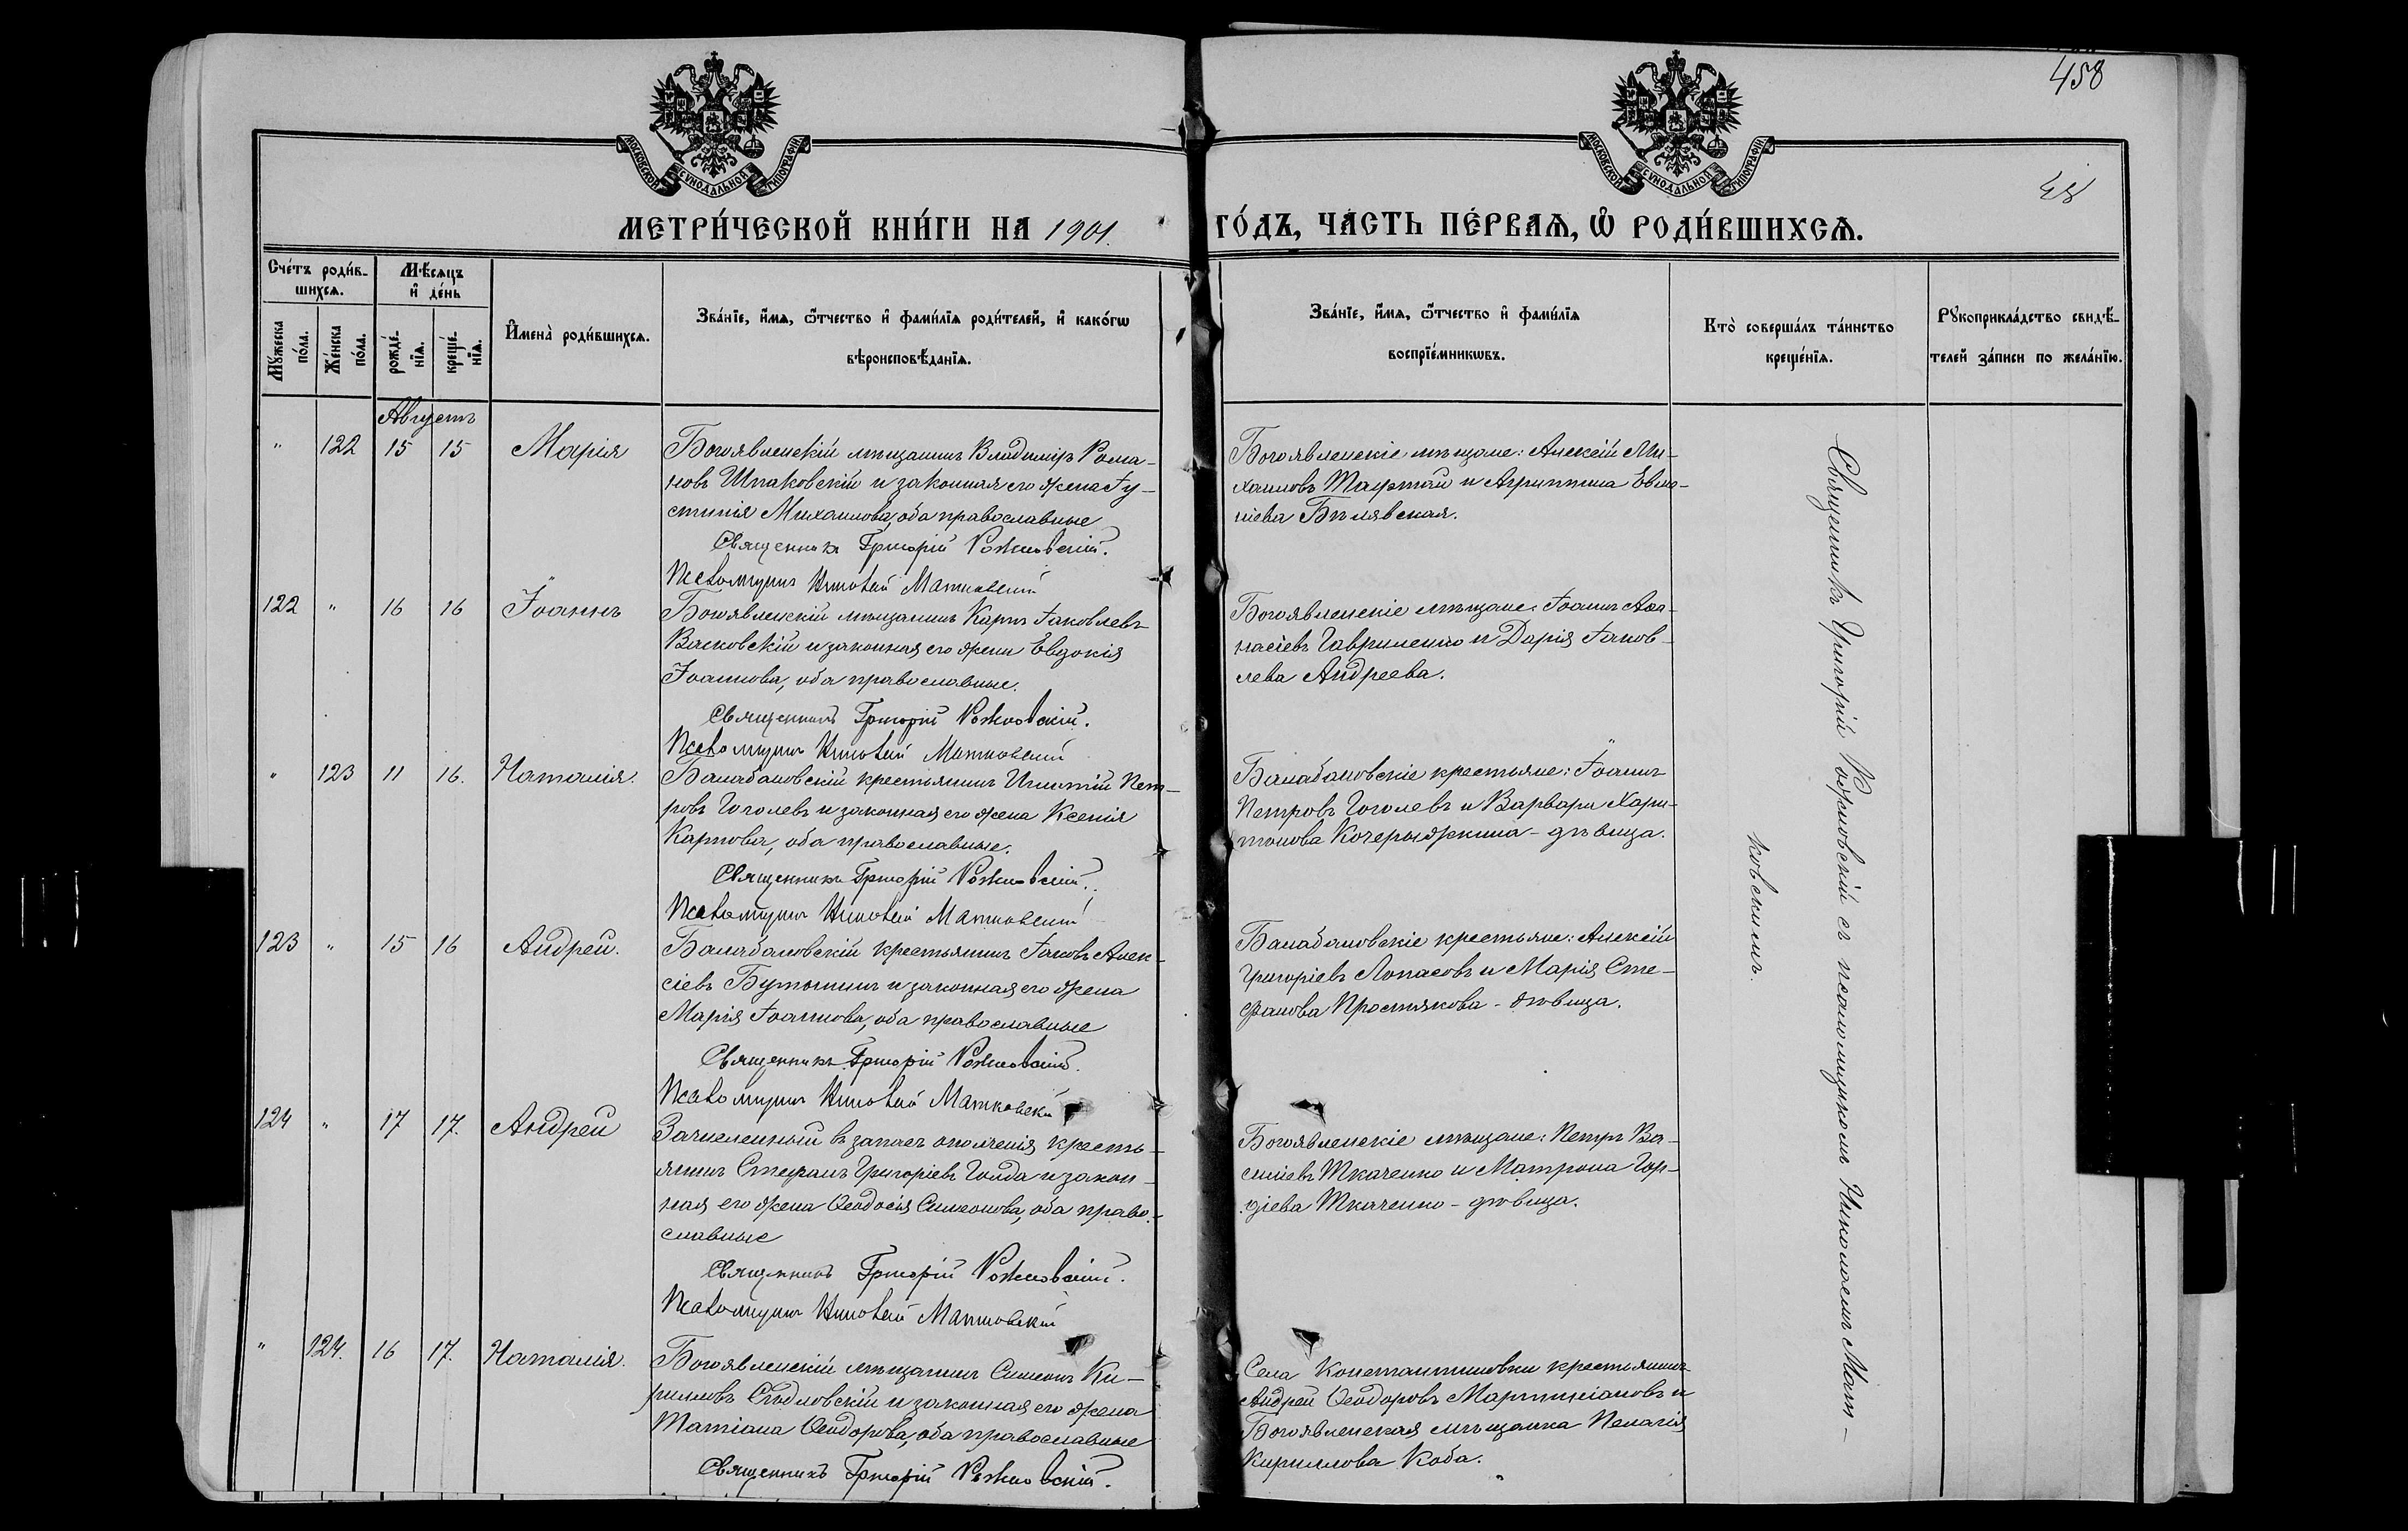 458
МОСКОВСКОЙ СѴНОДАЛЬНОЙ ТИПОГРАФІИ
МОСКОВСКОЙ СѴНОДАЛЬНОЙ ТИПОГРАФІИ
МЕТРИ́ЧЕСКОЙ КНИ́ГИ НА 1901. ГО́ДЪ, ЧА́СТЬ ПЕ́РВАѦ, Ѡ҆ РОДИ́ВШИХСѦ.
Сче́тъ роди́в-
шихсѧ.
Мꙋ́жеска по́ла.
Же́нска по́ла.
Мѣ́сѧцъ
и҆ де́нь
рожде́-
нїѧ.
креще́-
нїѧ.
И҆мена̀ роди́вшихсѧ.
Зва́нїе, и҆́мѧ, ѻ҆́тчество и҆ фами́лїѧ роди́телей, и҆ како́гѡ
вѣроисповѣ́данїѧ.
Зва́нїе, и҆́мѧ, ѻ҆́тчество и҆ фами́лїѧ
воспрїе́мникѡвъ.
Кто̀ соверша́лъ та́инство
креще́нїѧ.
Рꙋкоприкла́дство свидѣ́-
телей за́писи по жела́нїю.
Августъ
" 122 15 15 Марія
Богоявленскій мѣщанинъ Владиміръ Рома-
новъ Шпаковскій и законная его жена Іу-
стинія Михаилова, оба православные
Священникъ Григорій Рожновскій.
Псаломщикъ Николай Матковскій
Богоявленскіе мѣщане: Алексій Ми-
хаиловъ и Агриппина Евме-
ніева Бѣлявская.
122 " 16 16 Іоаннъ
Богоявленскій мѣщанинъ Карпъ Іаковлевъ
Васковскій и законная его жена Евдокія
Іоаннова, оба православные.
Священникъ Григорій Рожновскій.
Псаломщикъ Николай Матковскій
Богоявленскіе мѣщане: Іоаннъ Аѳа-
насіевъ Гавриленко и Дарія Іаков-
лева Андреева.
" 123 11 16. Наталія.
Балабановскій крестьянинъ Игнатій Пет-
ровъ Гоголевъ и законная его жена Ксенія
Карпова, оба православные.
Священникъ Григорій Рожновскій.
Псаломщикъ Николай Матковскій
Балабановскіе крестьяне: Іоаннъ
Петровъ Гоголевъ и Варвара Хари-
тонова Кочерыжкина - дѣвица.
123 " 15 16 Андрей.
Балабановскій крестьянинъ Іаковъ Алек-
сіевъ Бутылинъ и законная его жена
Марія Іоаннова, оба православные
Священникъ Григорій Рожновскій.
Псаломщикъ Николай Матковскій
Балабановскіе крестьяне: Алексій
Григоріевъ Лопасовъ и Марія Сте-
фанова Простякова - дѣвица.
124 " 17 17. Андрей
Зачисленный въ запасъ ополченія кресть-
янинъ Стефанъ Григоріевъ Голда и закон-
ная его жена Ѳеодосія Симеонова, оба право-
славные
Священникъ Григорій Рожновскій.
Псаломщикъ Николай Матковскій
Богоявленскіе мѣщане: Петръ Ва-
силіевъ Ткаченко и Матрона Гор-
діева Ткаченко - дѣвица.
" 124. 16 17. Наталія.
Богоявленскій мѣщанинъ Симеонъ Ки-
рилловъ Сѣдловскій и законная его жена
Татіана Ѳеодорова, оба православные
Священникъ Григорій Рожновскій.
Села Константиновки крестьянинъ
Андрей Ѳеодоровъ Мартиніановъ и
Богоявленская мѣщанка Пелагія
Кириллова Коба.
Священникъ Григорій Рожновскій съ псаломщикомъ Николаемъ Мат-
ковскимъ.